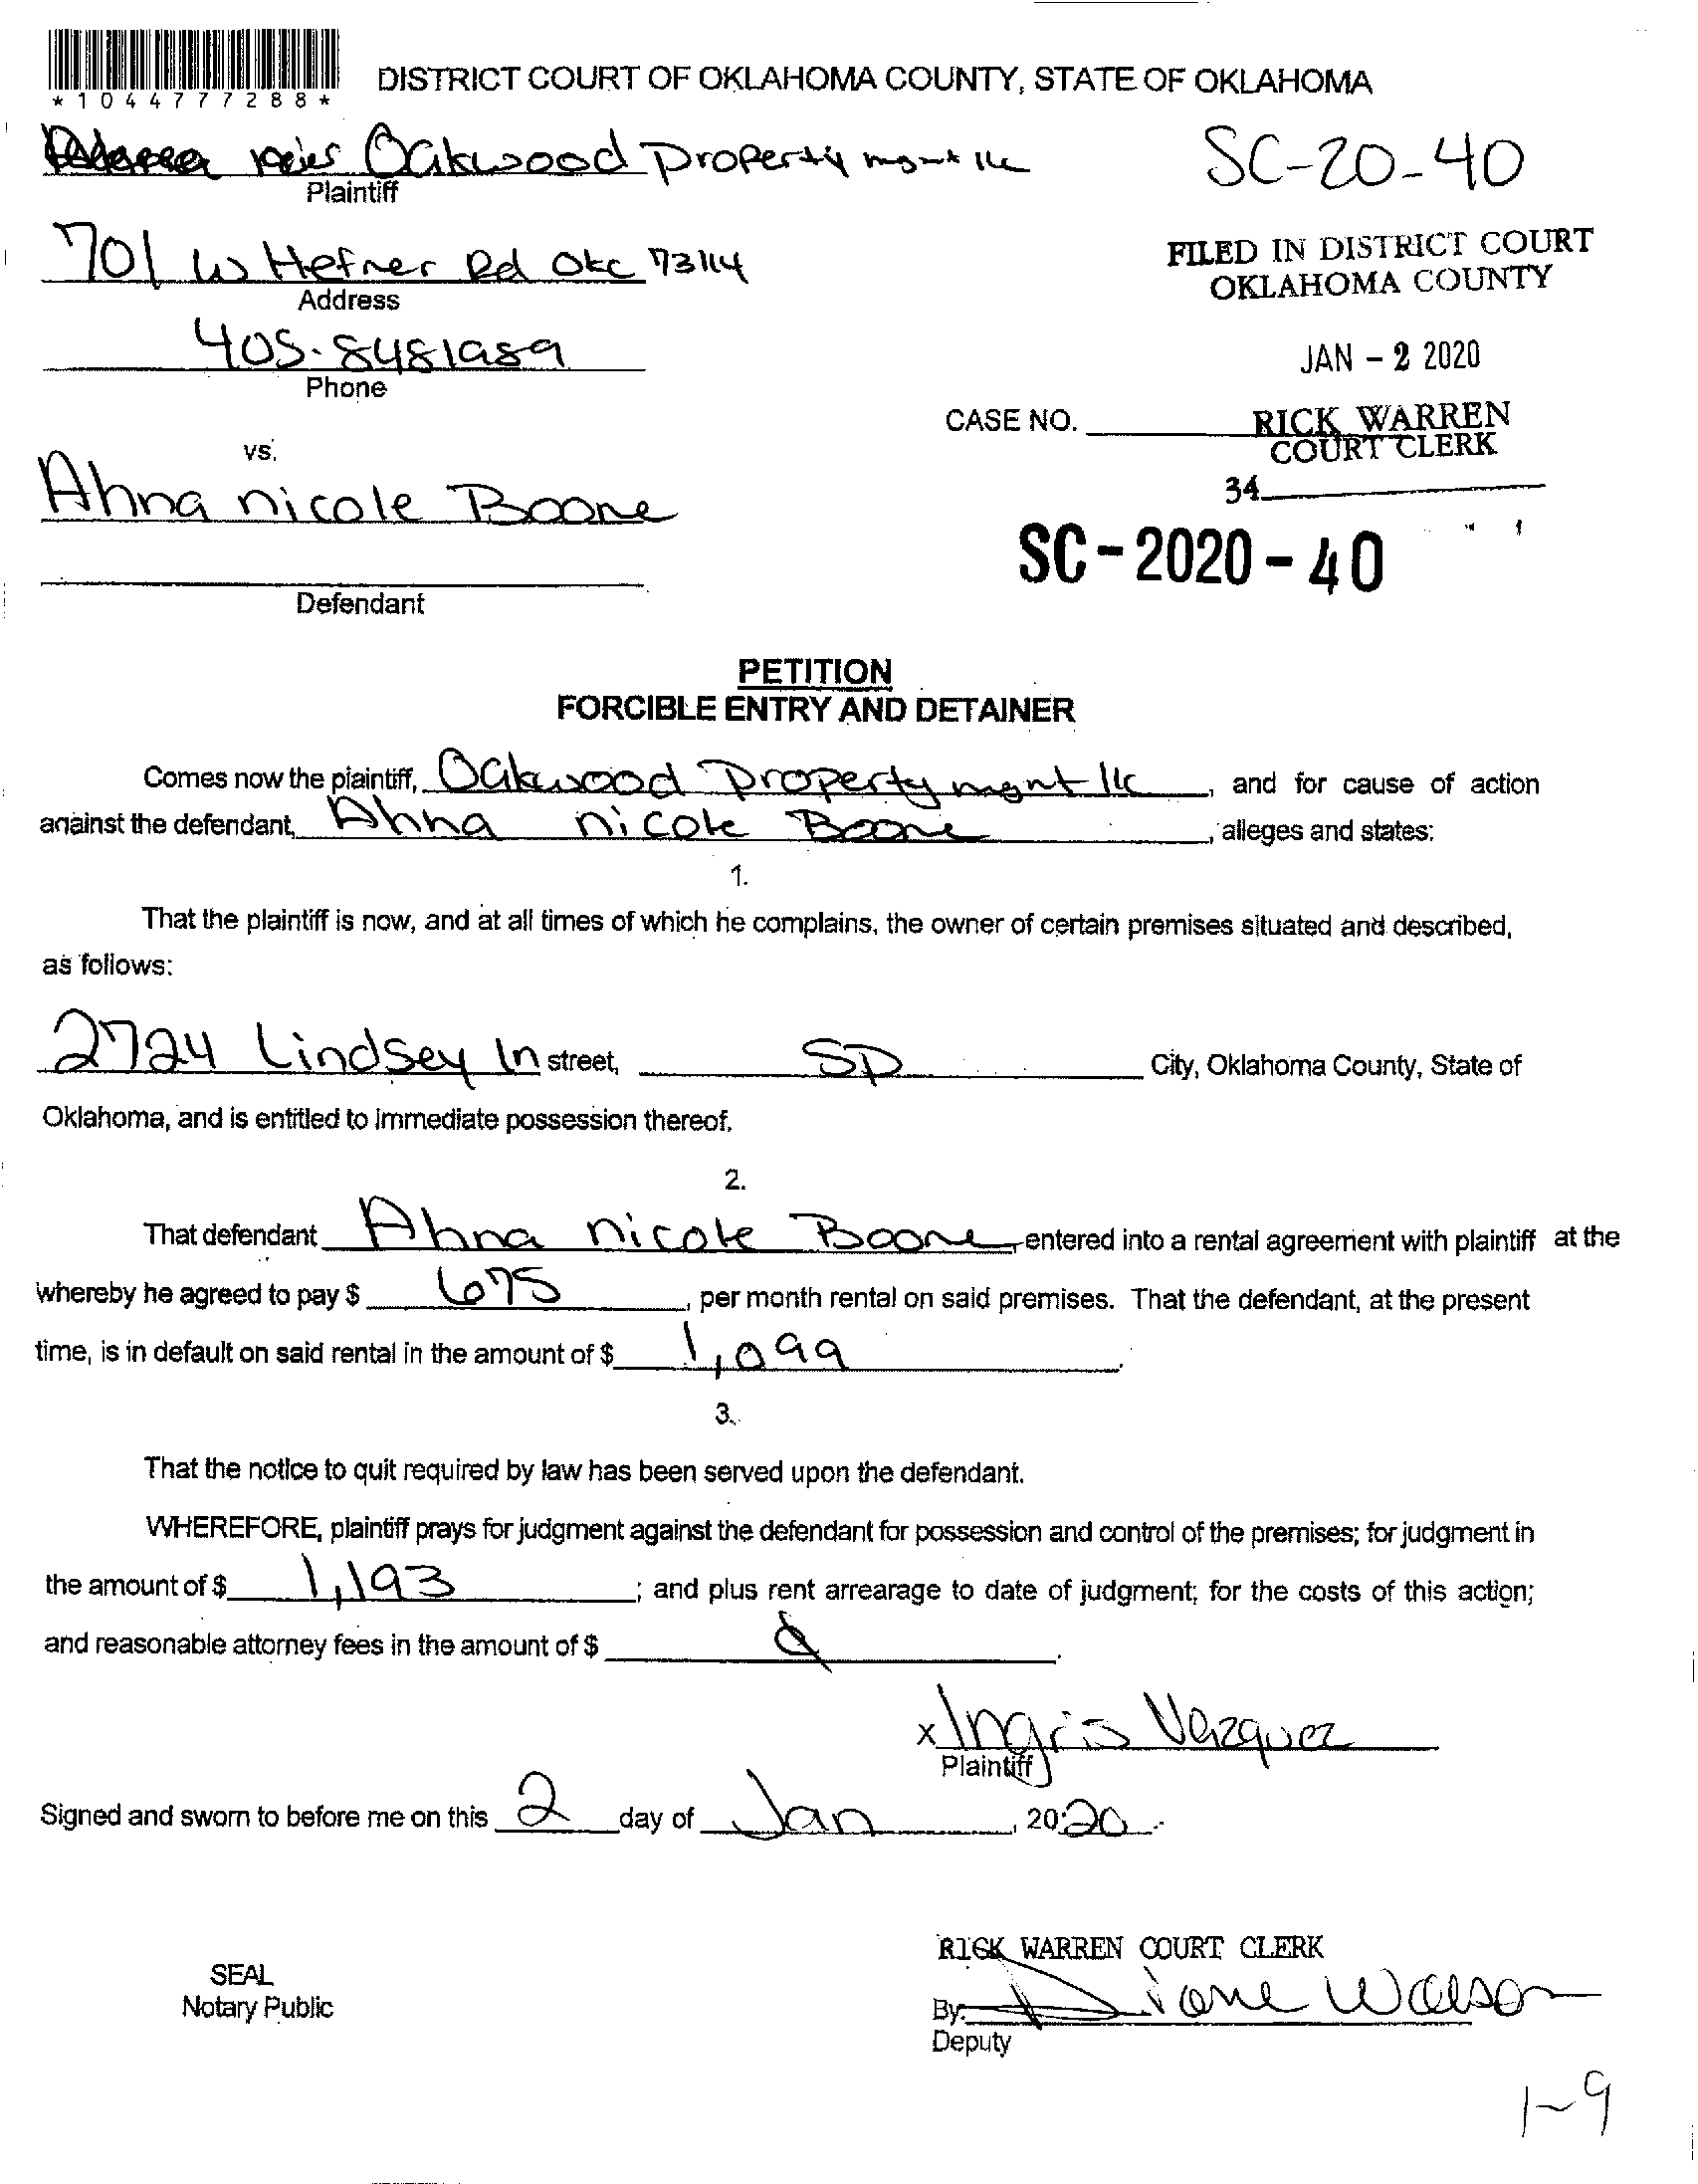 *1044777288*
DISTRICT COURT OF OKLAHOMA COUNTY, STATE OF OKLAHOMA
Oakwood Property mgmt llc
SC-20-40
Plaintiff
701 W Hefner Rd OKC 73114
FILED IN DISTRICT COURT
OKLAHOMA COUNTY
Address
405-8481989
JAN - 2 2020
Phone
CASE NO.
RICK WARREN
COURT CLERK
vs.
34
Ahna nicole Boone
SC-2020-40
Defendant
PETITION
FORCIBLE ENTRY AND DETAINER
Comes now the plaintiff, Oakwood Property mgmt llc, and for cause of action
against the defendant, Ahna nicole Boone, alleges and states:
1.
That the plaintiff is now, and at all times of which he complains, the owner of certain premises situated and described,
as follows:
2724 Lindsey ln street, SD City, Oklahoma County, State of
Oklahoma, and is entitled to immediate possession thereof.
2.
That defendant Ahna nicole Boone entered into a rental agreement with plaintiff at the
whereby he agreed to pay $ 675, per month rental on said premises. That the defendant, at the present
time, is in default on said rental in the amount of $ 1,099.
3.
That the notice to quit required by law has been served upon the defendant.
WHEREFORE, plaintiff prays for judgment against the defendant for possession and control of the premises; for judgment in
the amount of $ 1,193; and plus rent arrearage to date of judgment; for the costs of this action;
and reasonable attorney fees in the amount of $
x Ingris Vazquez
Plaintiff
Signed and sworn to before me on this 2 day of Jan, 2020.
RICK WARREN COURT CLERK
SEAL
Notary Public
By: Diane Walson
Deputy
1-9